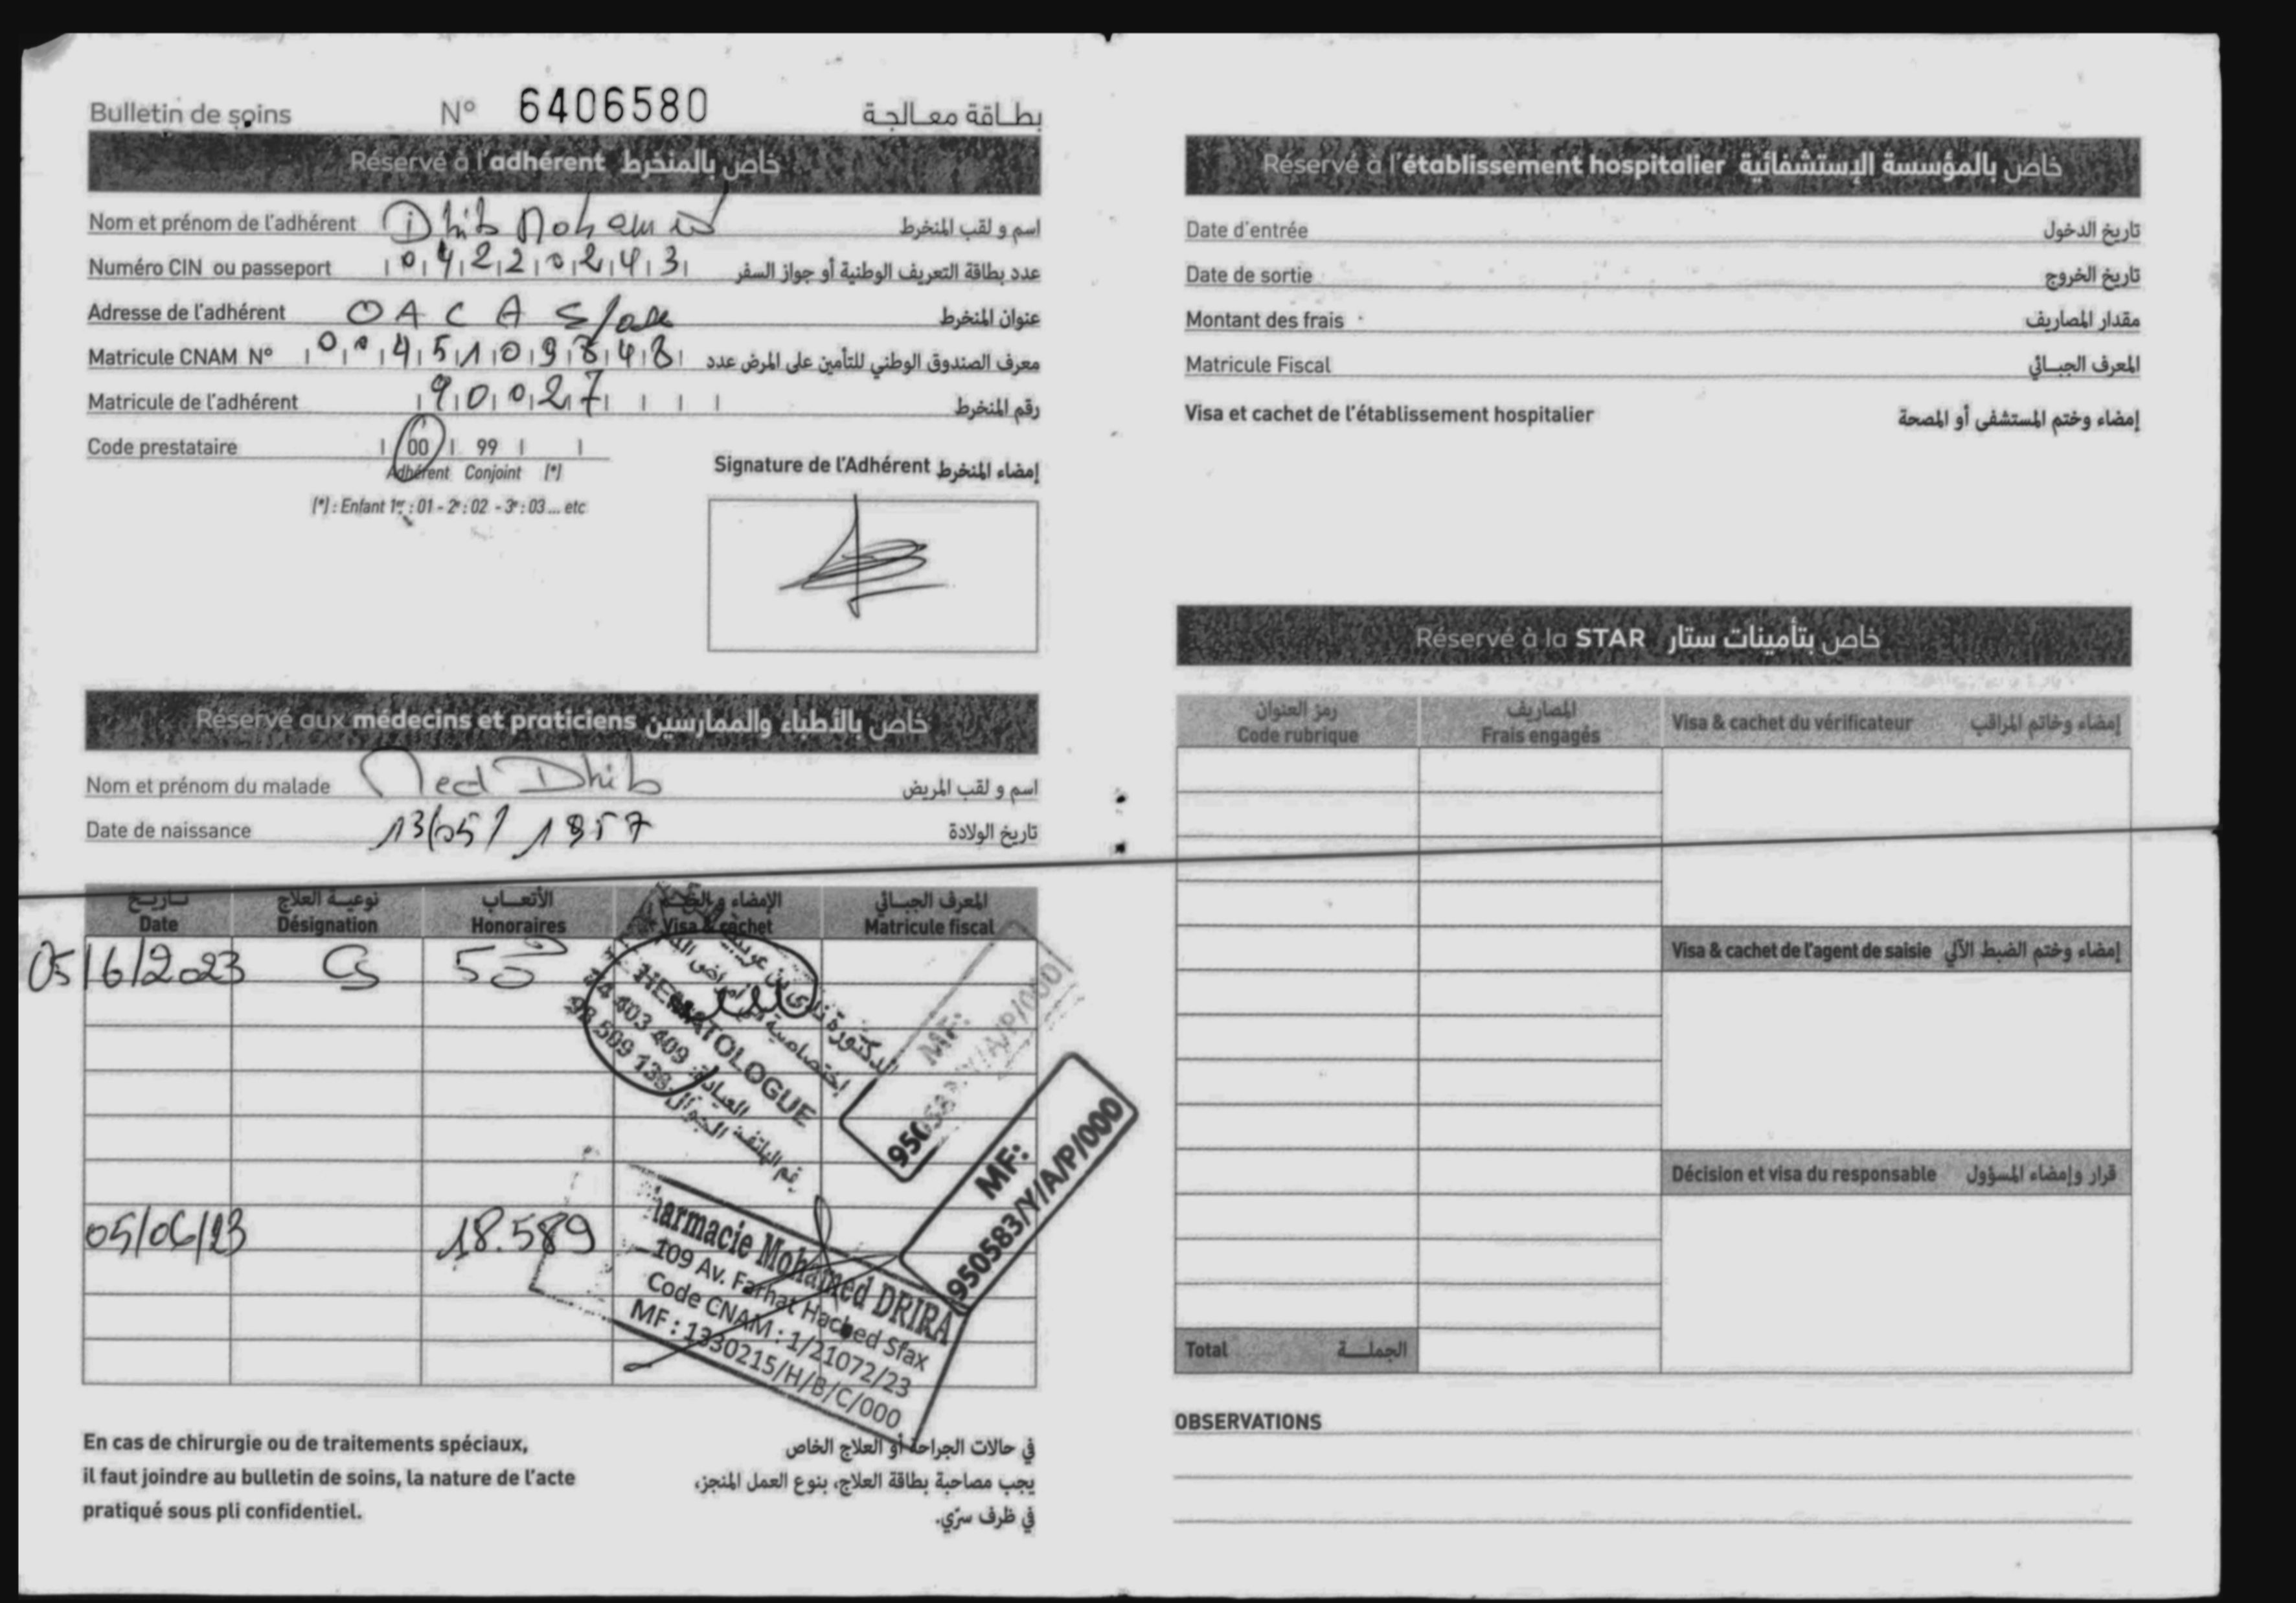 Bulletin de soins N° 6406580 بطاقة معالجة
Réservé à l'adhérent خاص بالمنخرط
Nom et prénom de l'adhérent Dhib Mohamed اسم و لقب المنخرط
Numéro CIN ou passeport 04220243 عدد بطاقة التعريف الوطنية أو جواز السفر
Adresse de l'adhérent OACA Sfax عنوان المنخرط
Matricule CNAM N° 0045109848 معرف الصندوق الوطني للتأمين على المرض عدد
Matricule de l'adhérent 90027 رقم المنخرط
Code prestataire 00 99
Adhérent Conjoint (*)
(*) : Enfant 1er : 01 - 2e : 02 - 3e : 03 ... etc
Signature de l'Adhérent إمضاء المنخرط
Réservé aux médecins et praticiens خاص بالأطباء والممارسين
Nom et prénom du malade Med Dhib اسم و لقب المريض
Date de naissance 13/05/1957 تاريخ الولادة
تاريخ نوعية العلاج الأتعاب الإمضاء و المعرف الجبائي
Date Désignation Honoraires Visa & cachet Matricule fiscal
05/6/2023 Cs 50
HEMATOLOGUE
74 403 409 العيادة:
98 509 138 الجوال
رقم الهاتف
MF:
950583/Y/A/P/000
MF:
950583/Y/A/P/000
05/06/23 18.589
Pharmacie Mohamed DRIRA
109 Av. Farhat Hached Sfax
Code CNAM : 1/21072/23
MF : 1330215/H/B/C/000
En cas de chirurgie ou de traitements spéciaux,
il faut joindre au bulletin de soins, la nature de l'acte
pratiqué sous pli confidentiel.
في حالات الجراحة أو العلاج الخاص
يجب مصاحبة بطاقة العلاج، بنوع العمل المنجز،
في ظرف سرّي.
Réservé à l'établissement hospitalier خاص بالمؤسسة الإستشفائية
Date d'entrée تاريخ الدخول
Date de sortie تاريخ الخروج
Montant des frais مقدار المصاريف
Matricule Fiscal المعرف الجبائي
Visa et cachet de l'établissement hospitalier إمضاء وختم المستشفى أو المصحة
Réservé à la STAR خاص بتأمينات ستار
رمز العنوان المصاريف
Code rubrique Frais engagés
Visa & cachet du vérificateur إمضاء وخاتم المراقب
Visa & cachet de l'agent de saisie إمضاء وختم الضبط الآلي
Décision et visa du responsable قرار وإمضاء المسؤول
Total الجملة
OBSERVATIONS